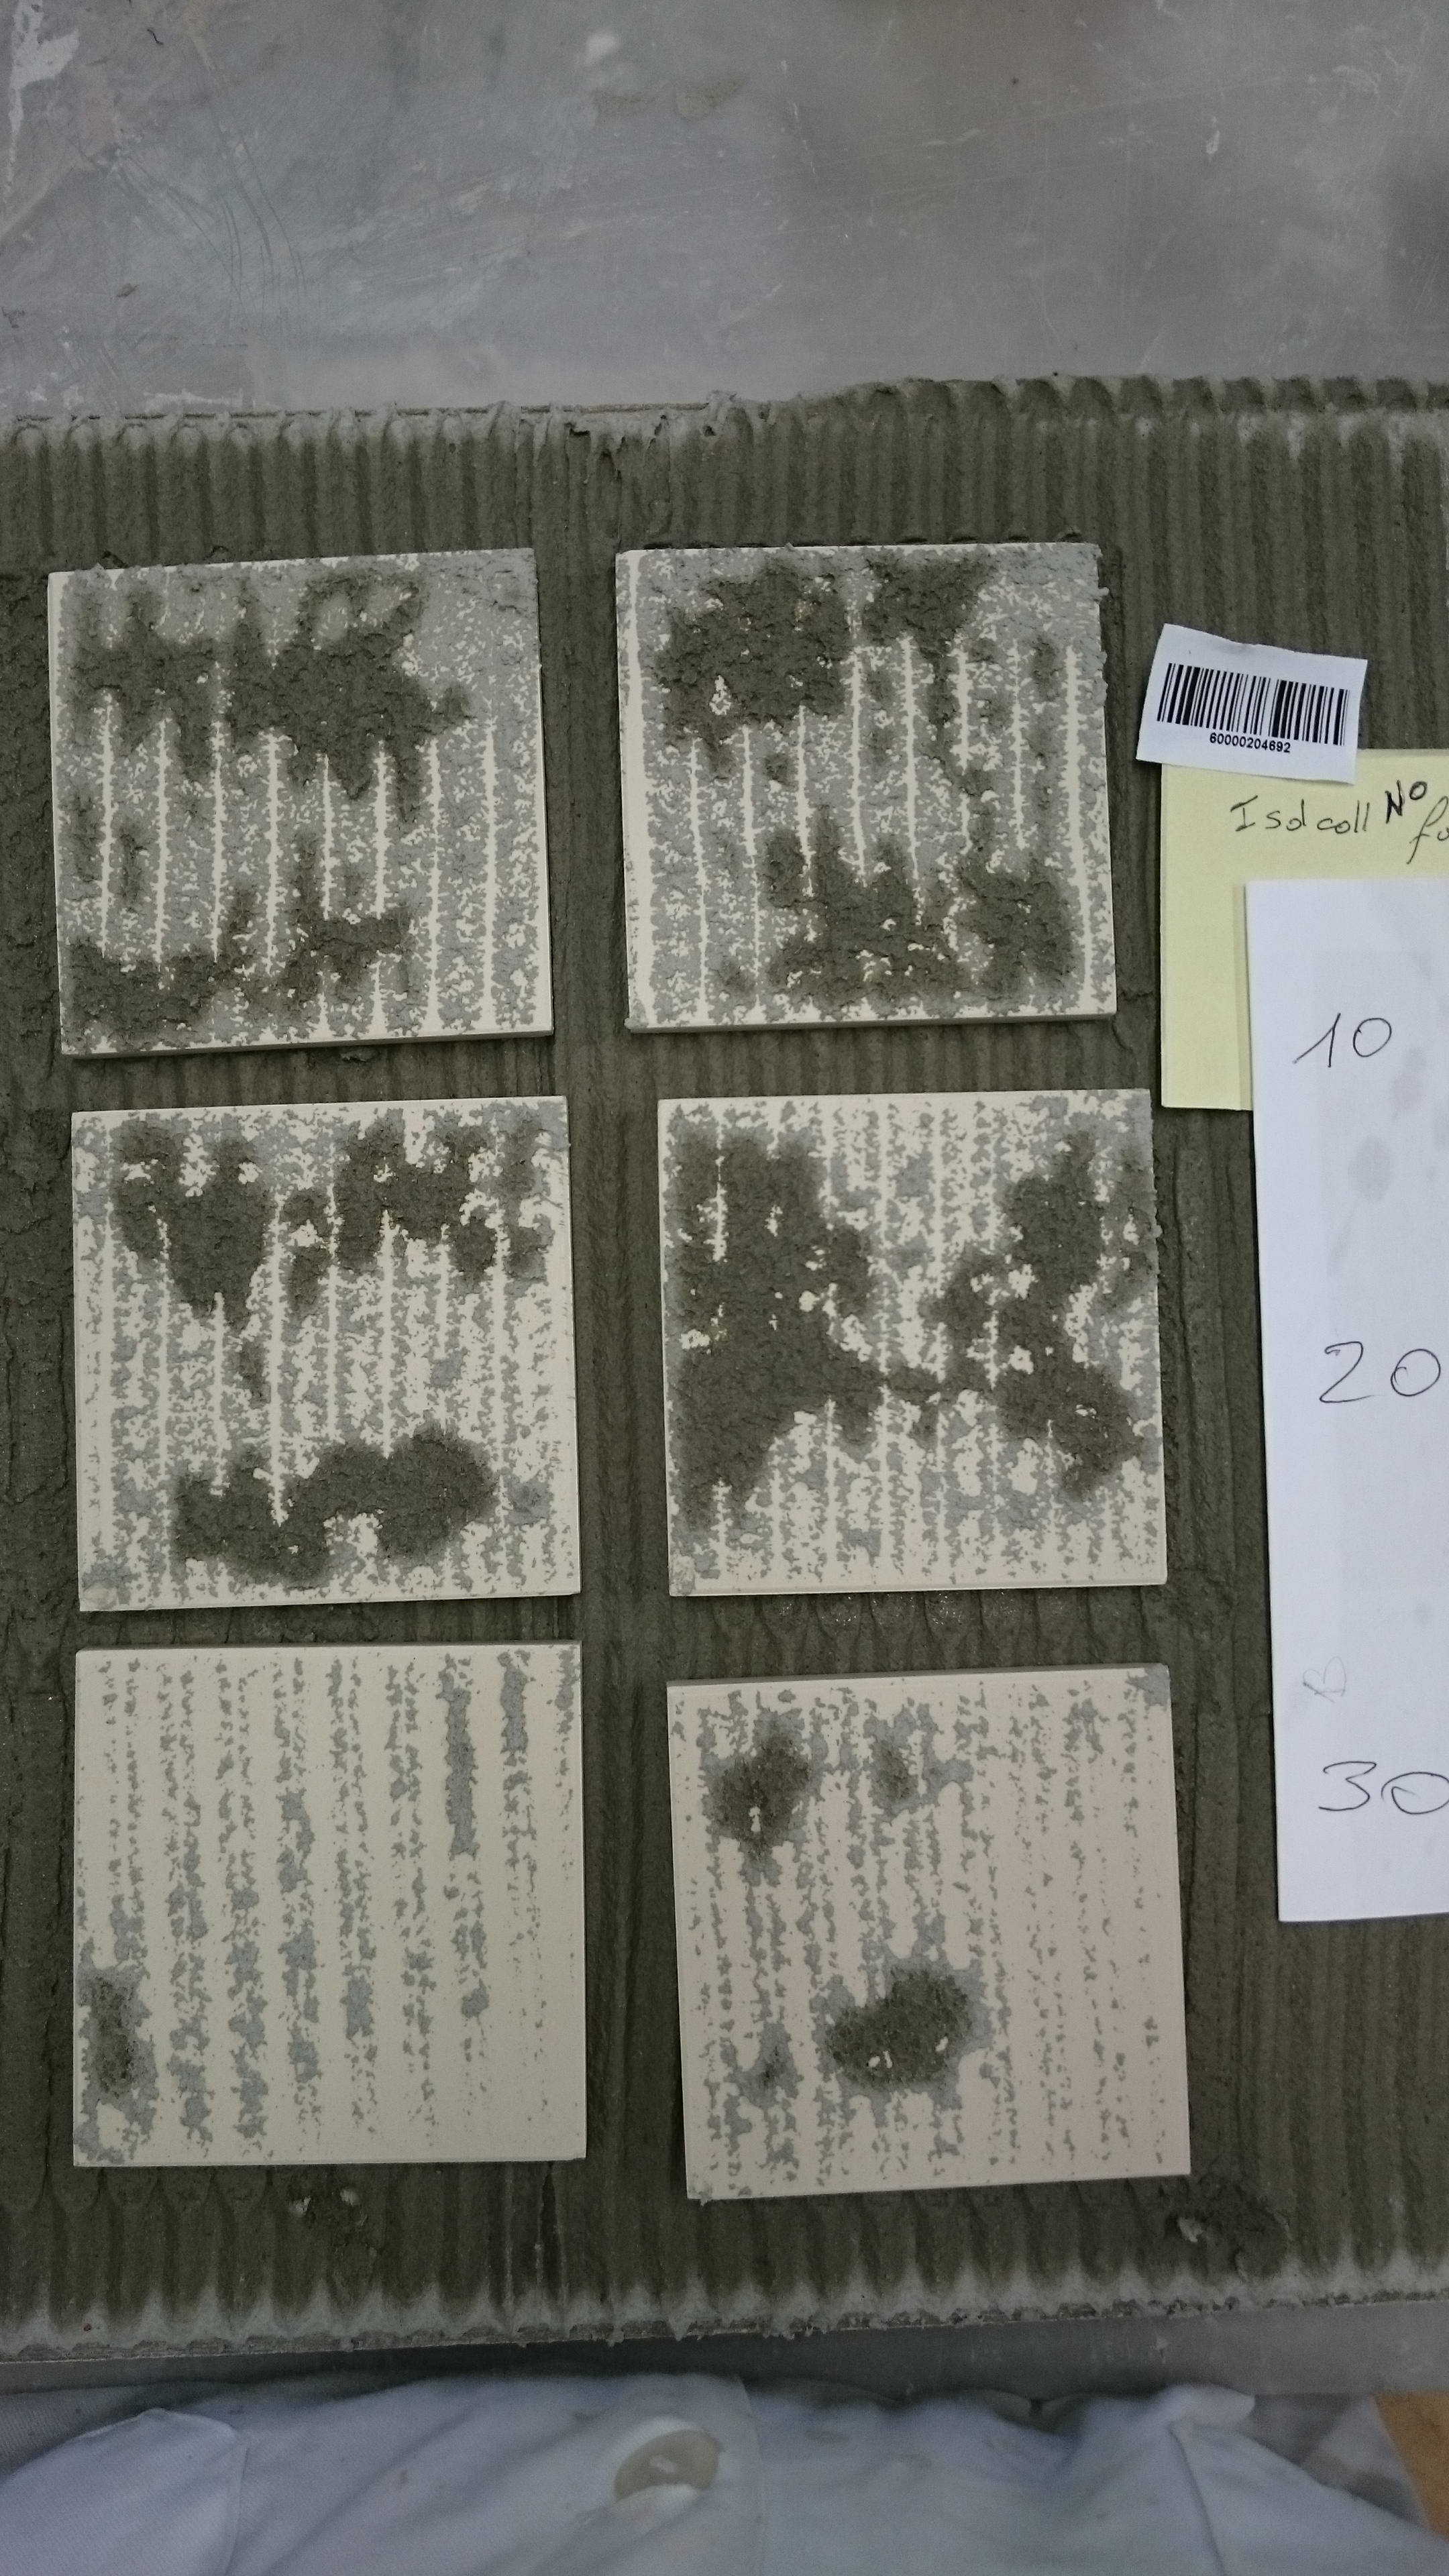 60000204692
Isolcoll N°
10
20
30